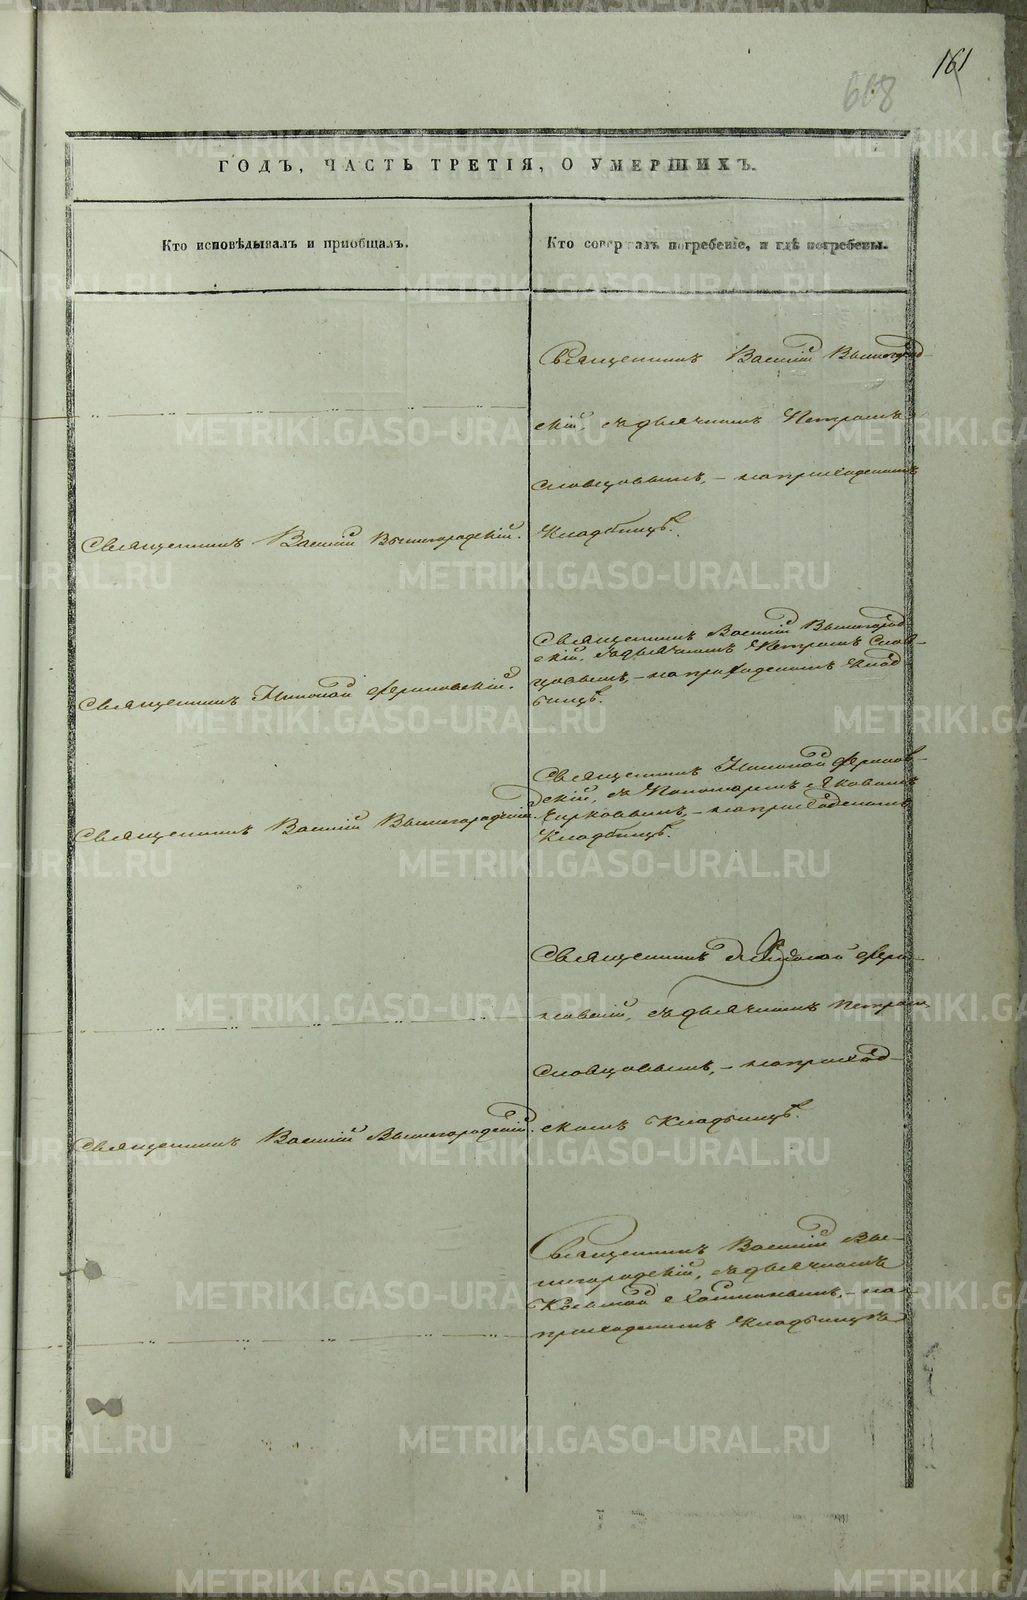 161
608
ГОДЪ, ЧАСТЬ ТРЕТІЯ, О УМЕРШИХЪ.
Кто исповѣдывалъ и пріобщалъ.
Кто совершалъ погребеніе, и гдѣ погребены.
Священникъ Василій Вышегород-
скій, съ дьячкомъ Петромъ
Словцовымъ, – на приходскомъ
Кладбищѣ.
Священникъ Василій Вышегородскій.
Священникъ Василій Вышегород
скій, съ дьячкомъ Петромъ Слов-
цовымъ, – на приходскомъ Клад
бищѣ.
Священникъ Николай
Священникъ Николай
скій, съ Пономаремъ Яковомъ
на приходскомъ
Кладбищѣ.
Священникъ Василій Вышегородскій.
Священникъ Николай
съ дьячкомъ Петромъ
Словцовымъ, – на приход-
скомъ Кладбищѣ.
Священникъ Василій Вышегородскій.
Священникъ Василій Вы-
шегородскій, съ дьячкомъ
на
приходскомъ Кладбищѣ
METRIKI.GASO-URAL.RU